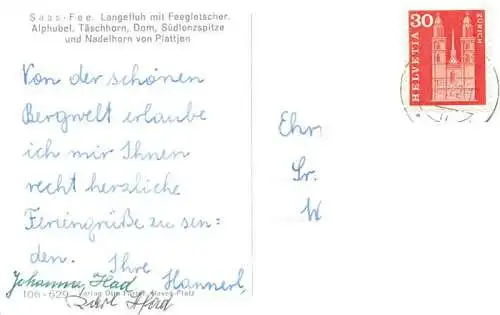 Saas-Fee. Langefluh mit Feegletscher.
Alphubel, Täschhorn, Dom, Südlenzspitze
und Nadelhorn von Plattjen
30
ZÜRICH
HELVETIA
Von der schönen
Bergwelt erlaube
ich mir Ihnen
recht herzliche
Feriengrüße zu sen=
den. Ihre
Hannerl,
Johanna
106-629
Ehr
Sr.
W